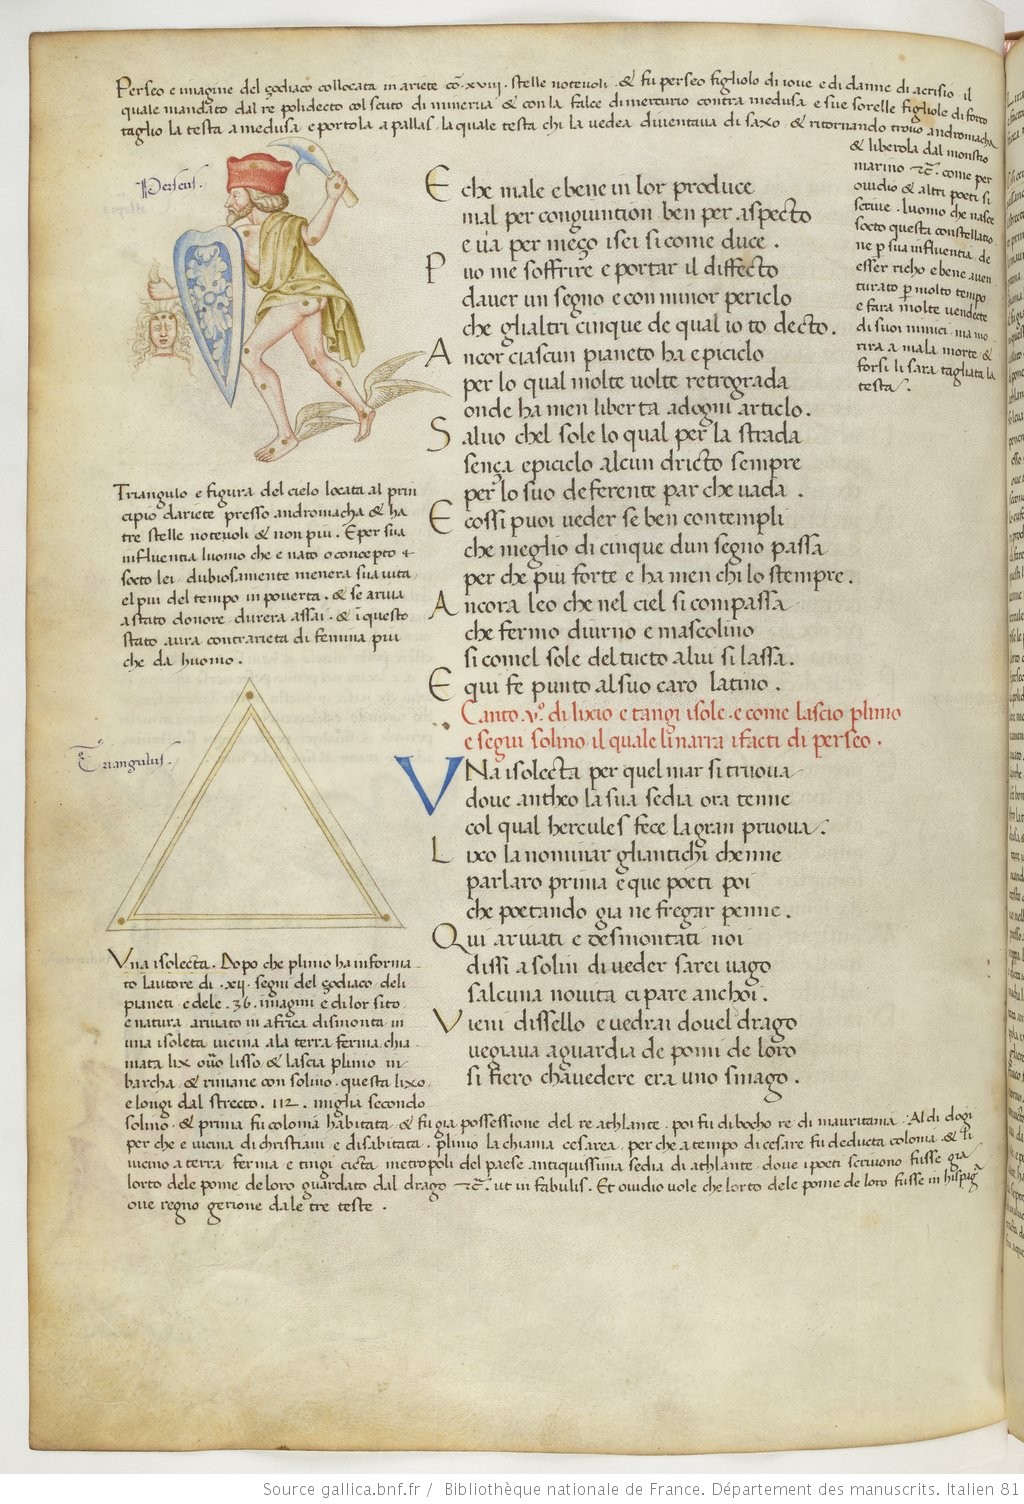 Perseo e imagine del zodiaco collocata in ariete cō .xviij. stelle notevoli . & fu perseo figliolo di iove e di danne di acrisio il
quale mandato dal re polidecto col scuto di minerva & con la falce di mercurio contra medusa e sue sorelle figliole di forco
taglio la testa a medusa e portola a pallas . la quale testa chi la vedea diventava di saxo . & ritornando trovo andromacha
& liberola dal monstro
marino &c̄. come per
ovidio & altri poeti si
scrive . luomo che nasce
socto questa constellatio
ne p̱ sua influentia de
esser richo e bene aven
turato p̱ molto tempo
e fara molte vendecte
di suoi nimici . ma mo
rira a mala morte &
forsi li sara tagliata la
testa .
Perseus.
E che male e bene in lor produce
mal per congiuntion ben per aspecto
e v̄a per mezo i sei si come duce .
P uo me soffrire e portar il diffecto
daver un segno e con minor periclo
che glialtri cinque de qual io to decto .
A ncor ciascun pianeto ha epiciclo
per lo qual molte volte retrograda
onde ha men liberta adogni articlo .
S alvo chel sole lo qual per la strada
senza epiciclo alcun dricto sempre
per lo suo deferente par che vada .
E cossi puoi veder se ben contempli
che meglio di cinque dun segno passa
per che piu forte e ha men chi lo stempre .
A ncora leo che nel ciel si compassa
che fermo diurno e mascolino
si comel sole del tucto alui si lassa .
E qui fe punto al suo caro latino .
Canto .v°. di lixio e tangi isole . e come lascio plinio
e segui solino il quale li narra i facti di perseo .
VNa isolecta per quel mar si truova
dove antheo la sua sedia ora tenne
col qual hercules fece la gran pruova .
L ixo la nominar gliantichi chenne
parlaro prima e que poeti poi
che poetando gia ne fregar penne .
Q ui arivati e desmontati noi
dissi a solin di veder sarei vago
salcuna novita ci pare anchoi .
V ieni dissello e vedrai dovel drago
vegiava a guardia de pomi de loro
si fiero cha vedere era uno smago .
Triangulo e figura del cielo locata al prin
cipio dariete presso andromacha & ha
tre stelle notevoli & non piu . E per sua
influentia luomo che e nato o concepto
socto lei . dubiosamente menera sua vita
el piu del tempo in poverta . & se ariva
a stato donore durera assai . & ī questo
stato avra contrarieta di femina piu
che da huomo .
Triangulus .
Vna isolecta . Dopo che plinio ha informa
to lautore di .xij. segni del zodiaco deli
pianeti . e dele .36. imagini e di lor sito
e natura arivato in africa dismonta in
una isoleta vicina ala terra ferma chia
mata lix ov̄o lisso & lascia plinio in
barcha . & rimane con solino . questa lixo
e longi dal strecto . 112 . miglia secondo
solino . & prima fu colonia habitata . & fu gia possessione del re athlante . poi fu di bocho re di mauritania . Al di dogi
per che e vicina di christiani e disabitata . plinio la chiama cesarea . per che a tempo di cesare fu deducta colonia . & li
vicino a terra ferma e tingi cicta metropoli del paese antiquissima sedia di athlante dove i poeti scrivono fusse gia
lorto dele pome de loro guardato dal drago &c̄. ut in fabulis . Et ovidio vole che lorto dele pome de loro fusse in hispag̅
ove regno gerione da le tre teste .
Source gallica.bnf.fr / Bibliothèque nationale de France. Département des manuscrits. Italien 81